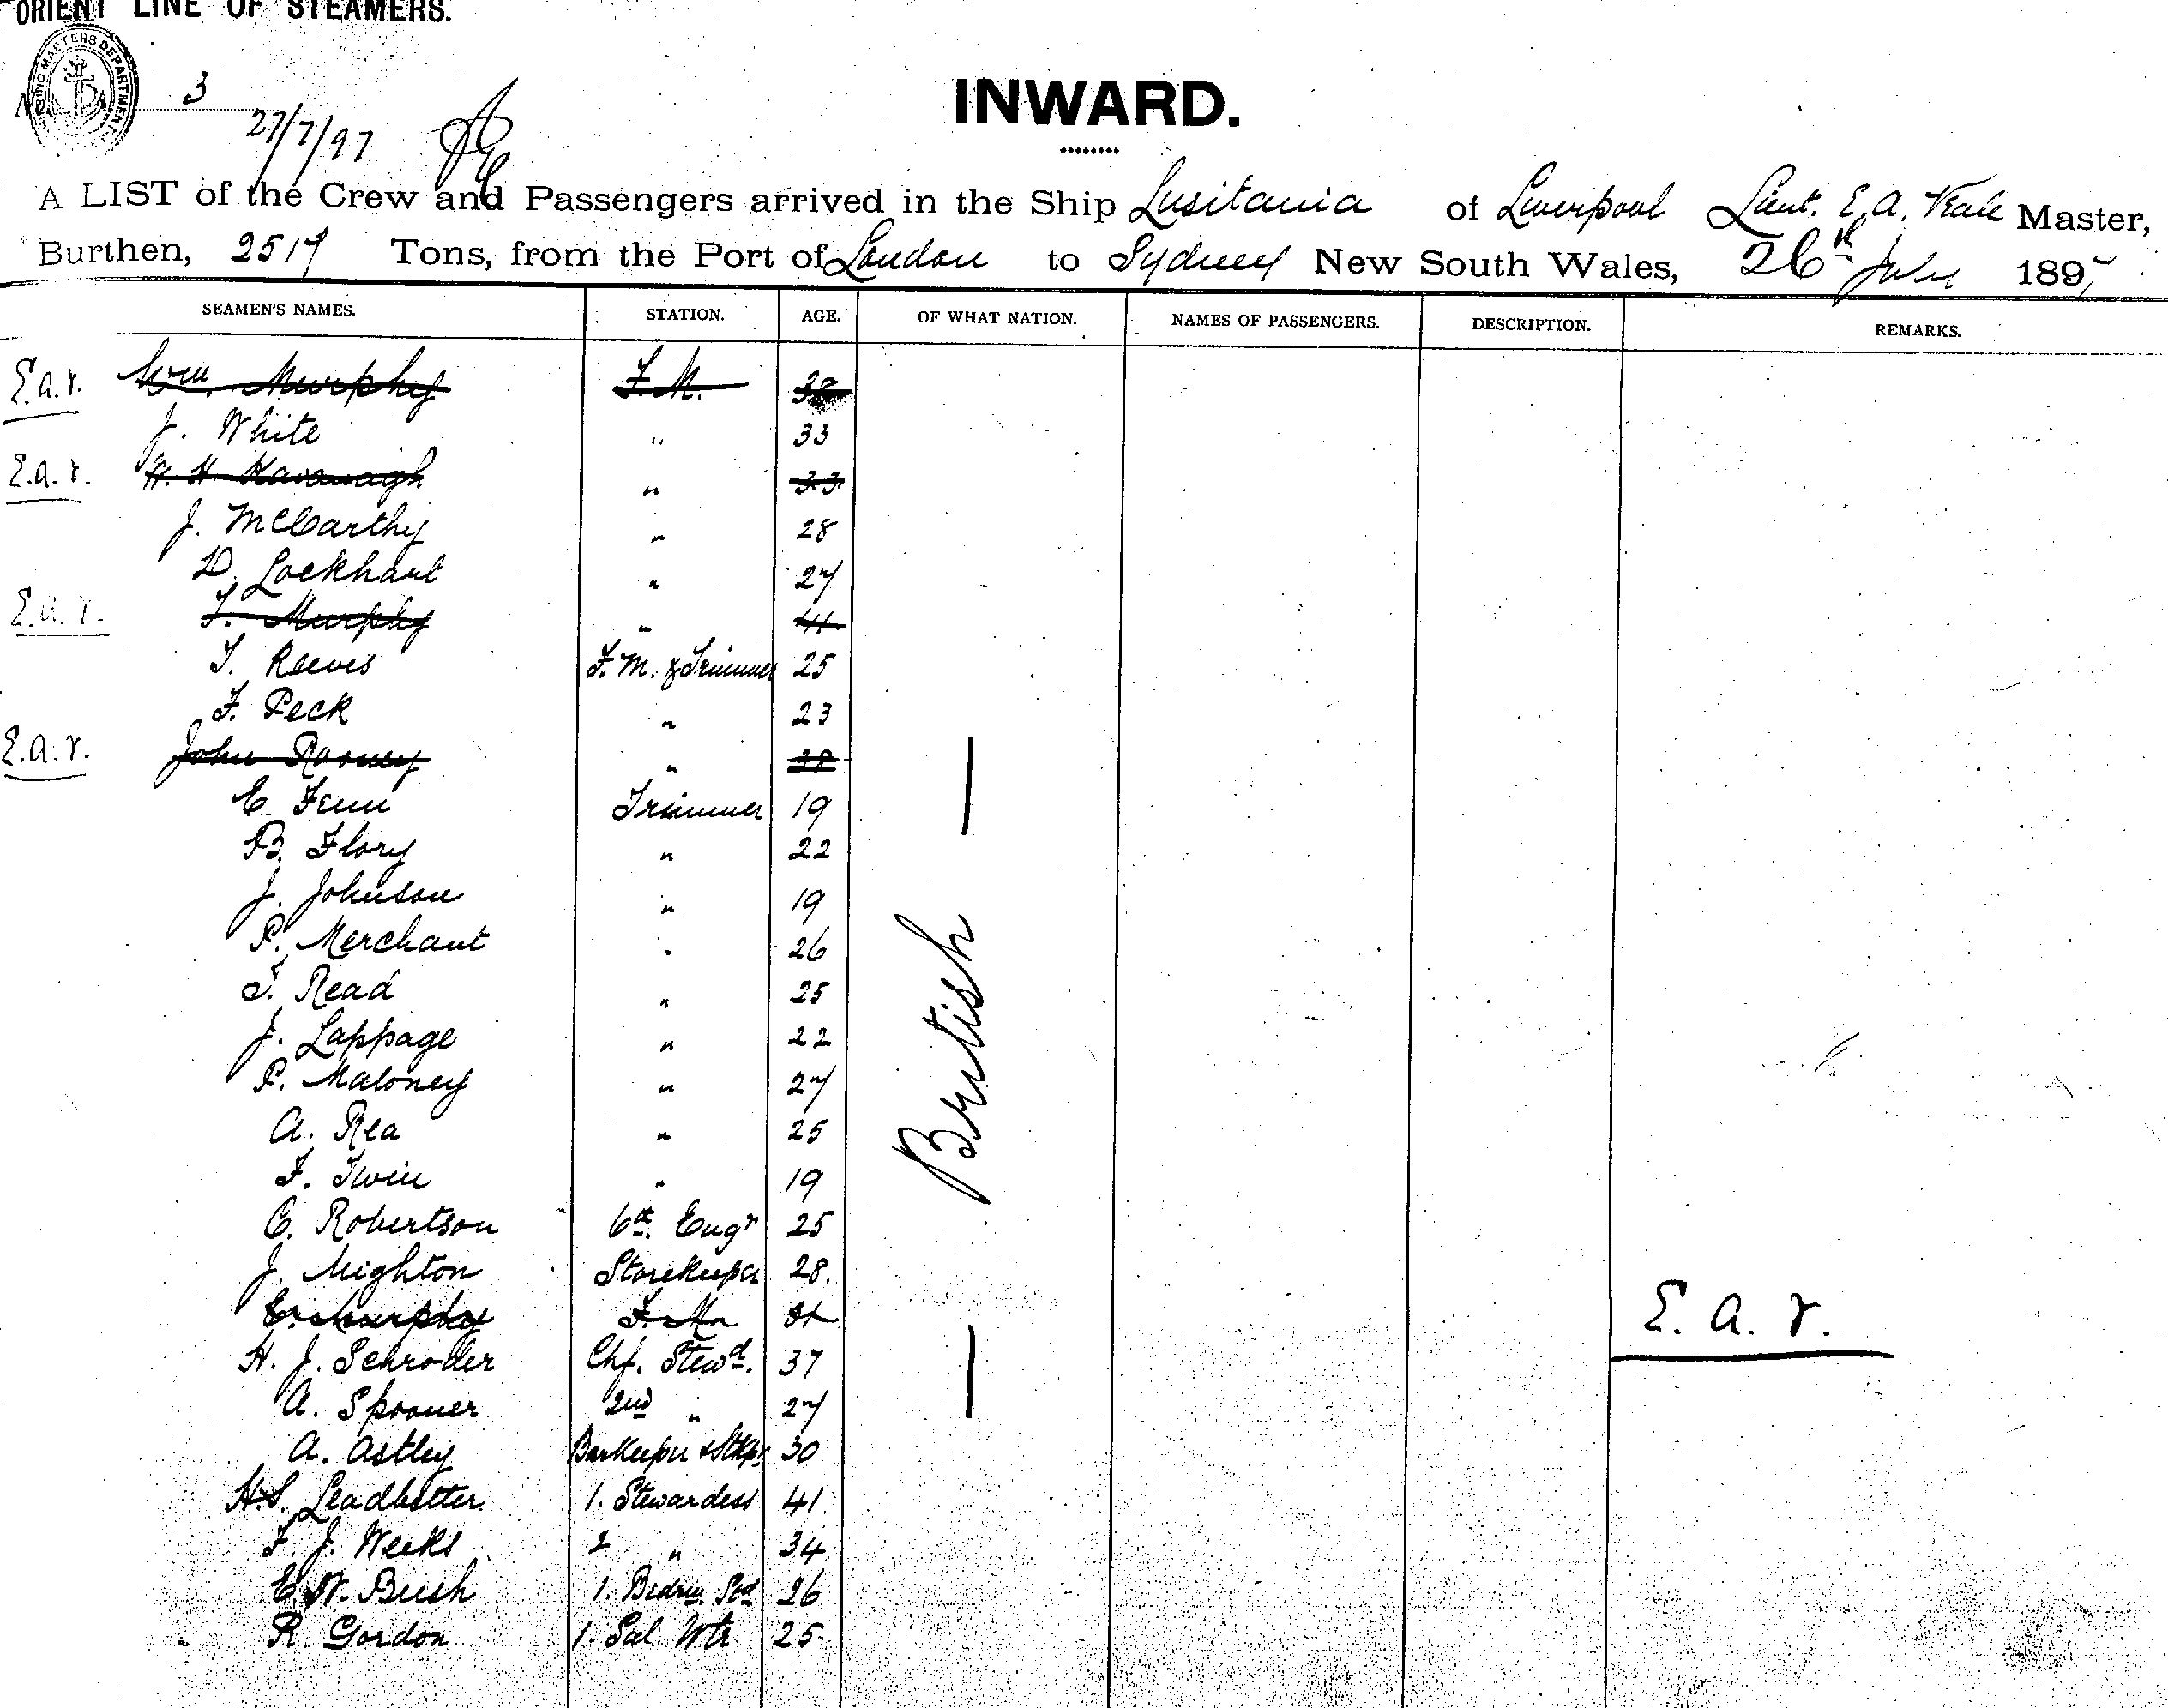 ORIENT LINE OF STEAMERS.
MASTERS DEPARTMENT
3
27/7/97
INWARD.
A LIST of the Crew and Passengers arrived in the Ship Lusitania of Liverpool Lieut. E. A. Veale Master,
Burthen, 2517 Tons, from the Port of London to Sydney New South Wales, 26th July 1897
SEAMEN'S NAMES. STATION. AGE. OF WHAT NATION. NAMES OF PASSENGERS. DESCRIPTION. REMARKS.
E.a.V. Wm. Murphy F.M. 38
J. White " 33
E.a.V. W. H. Kavanagh " 33
J. McCarthy " 28
D. Lockhart " 27
E.a.V. T. Murphy " 41
T. Reeves F.M. & Trimmer 25
F. Peck " 23
E.a.V. John Rooney " 28
E. Fenn Trimmer 19
B. Flory " 22
J. Johnson " 19
P. Merchant " 26
T. Read " 25
J. Lappage " 22
P. Maloney " 27
A. Rea " 25
F. Twin " 19
British
C. Robertson 6th. Engr 25
J. Mighton Storekeeper 28.
E. Murphy F.M.
E. a. V.
H. J. Schroder Chf. Stewd. 37
A. Spooner 2nd " 27
A. Astley Barkeeper & Stkpr. 30
H.S. Leadbetter 1. Stewardess 41
F. J. Weeks 2 " 34
E. W. Bush 1. Bedrm. Std 26
R. Gordon 1. Sal. Wtr 25